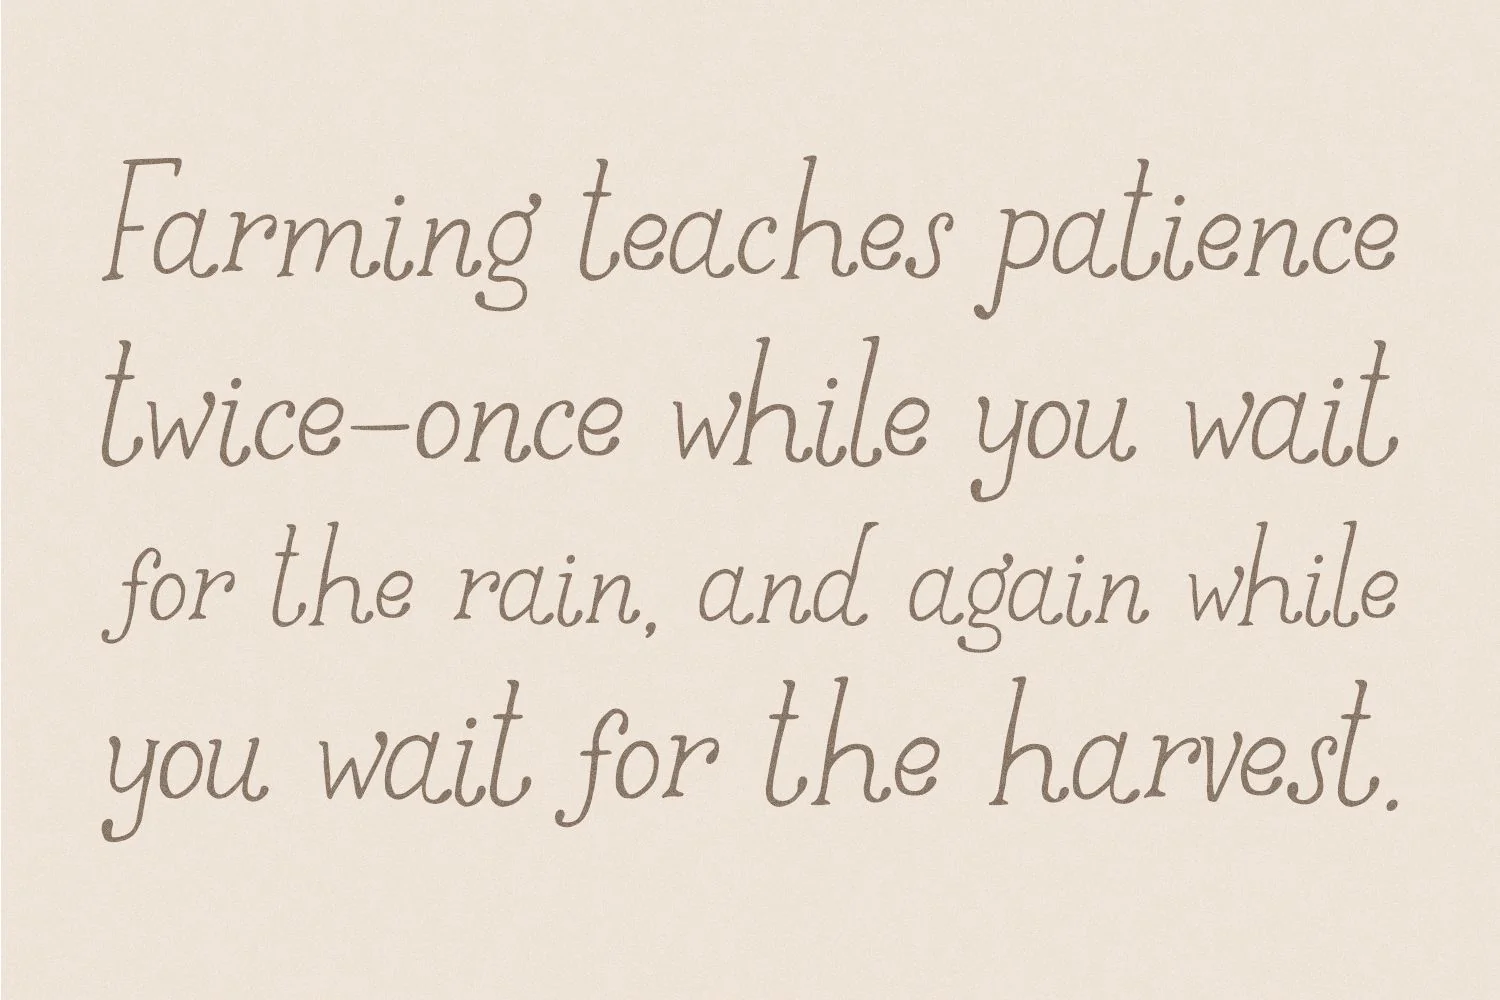 Farming teaches patience
twice—once while you wait
for the rain, and again while
you wait for the harvest.